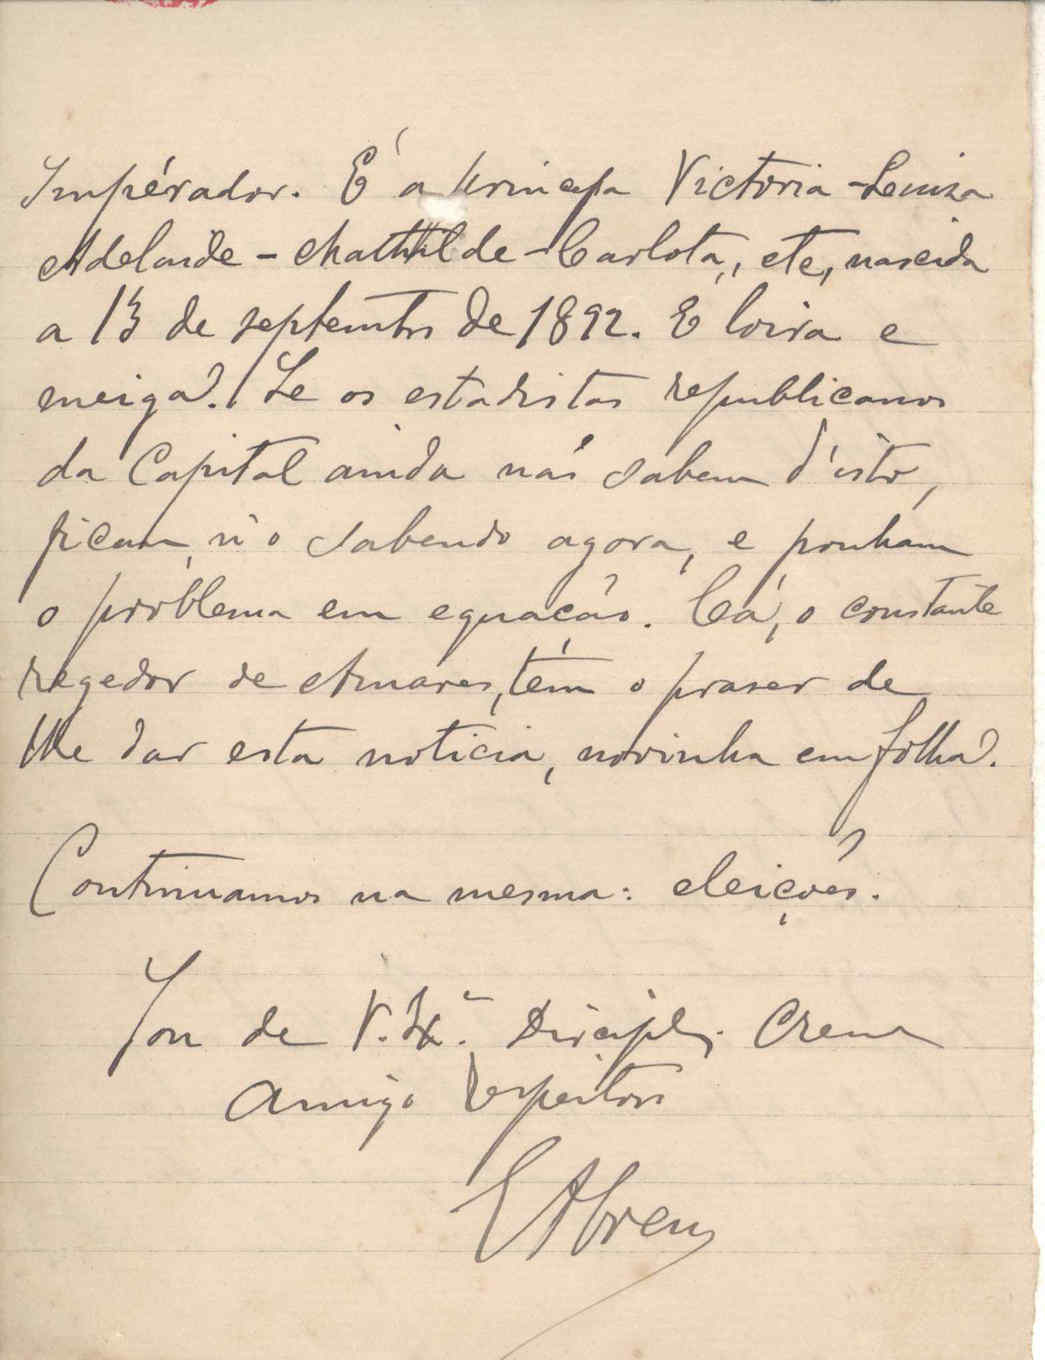 Impérador. É a princeza Victoria-Luiza
Adelaide-Mathilde-Carlota, etc, nascida
a 13 de septembro de 1892. É loira e
meiga. Se os estadistas republicanos
da Capital ainda não sabem d'isto,
ficam n'o sabendo agora, e ponham
o problema em equação. Cá, o constante
regedor de Amares, têm o praser de
lhe dar esta noticia, novinha em folha.
Continuamos na mesma: eleições.
Sou de V. Exª. Discipl, Creu
Amigo Respeitoso
EAbreu